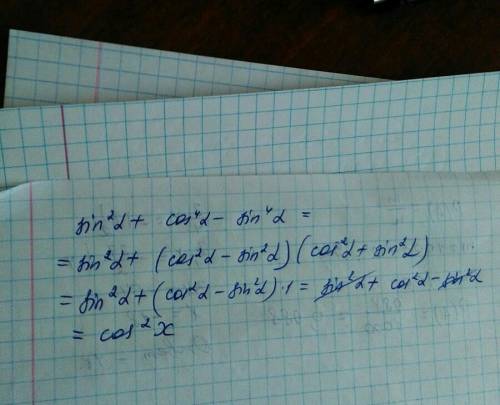 sin²α + cos⁴α - sin⁴α =
= sin²α + (cos²α - sin²α)(cos²α + sin²α)
= sin²α + (cos²α - sin²α)·1 = sin²α + cos²α - sin²α
= cos²x